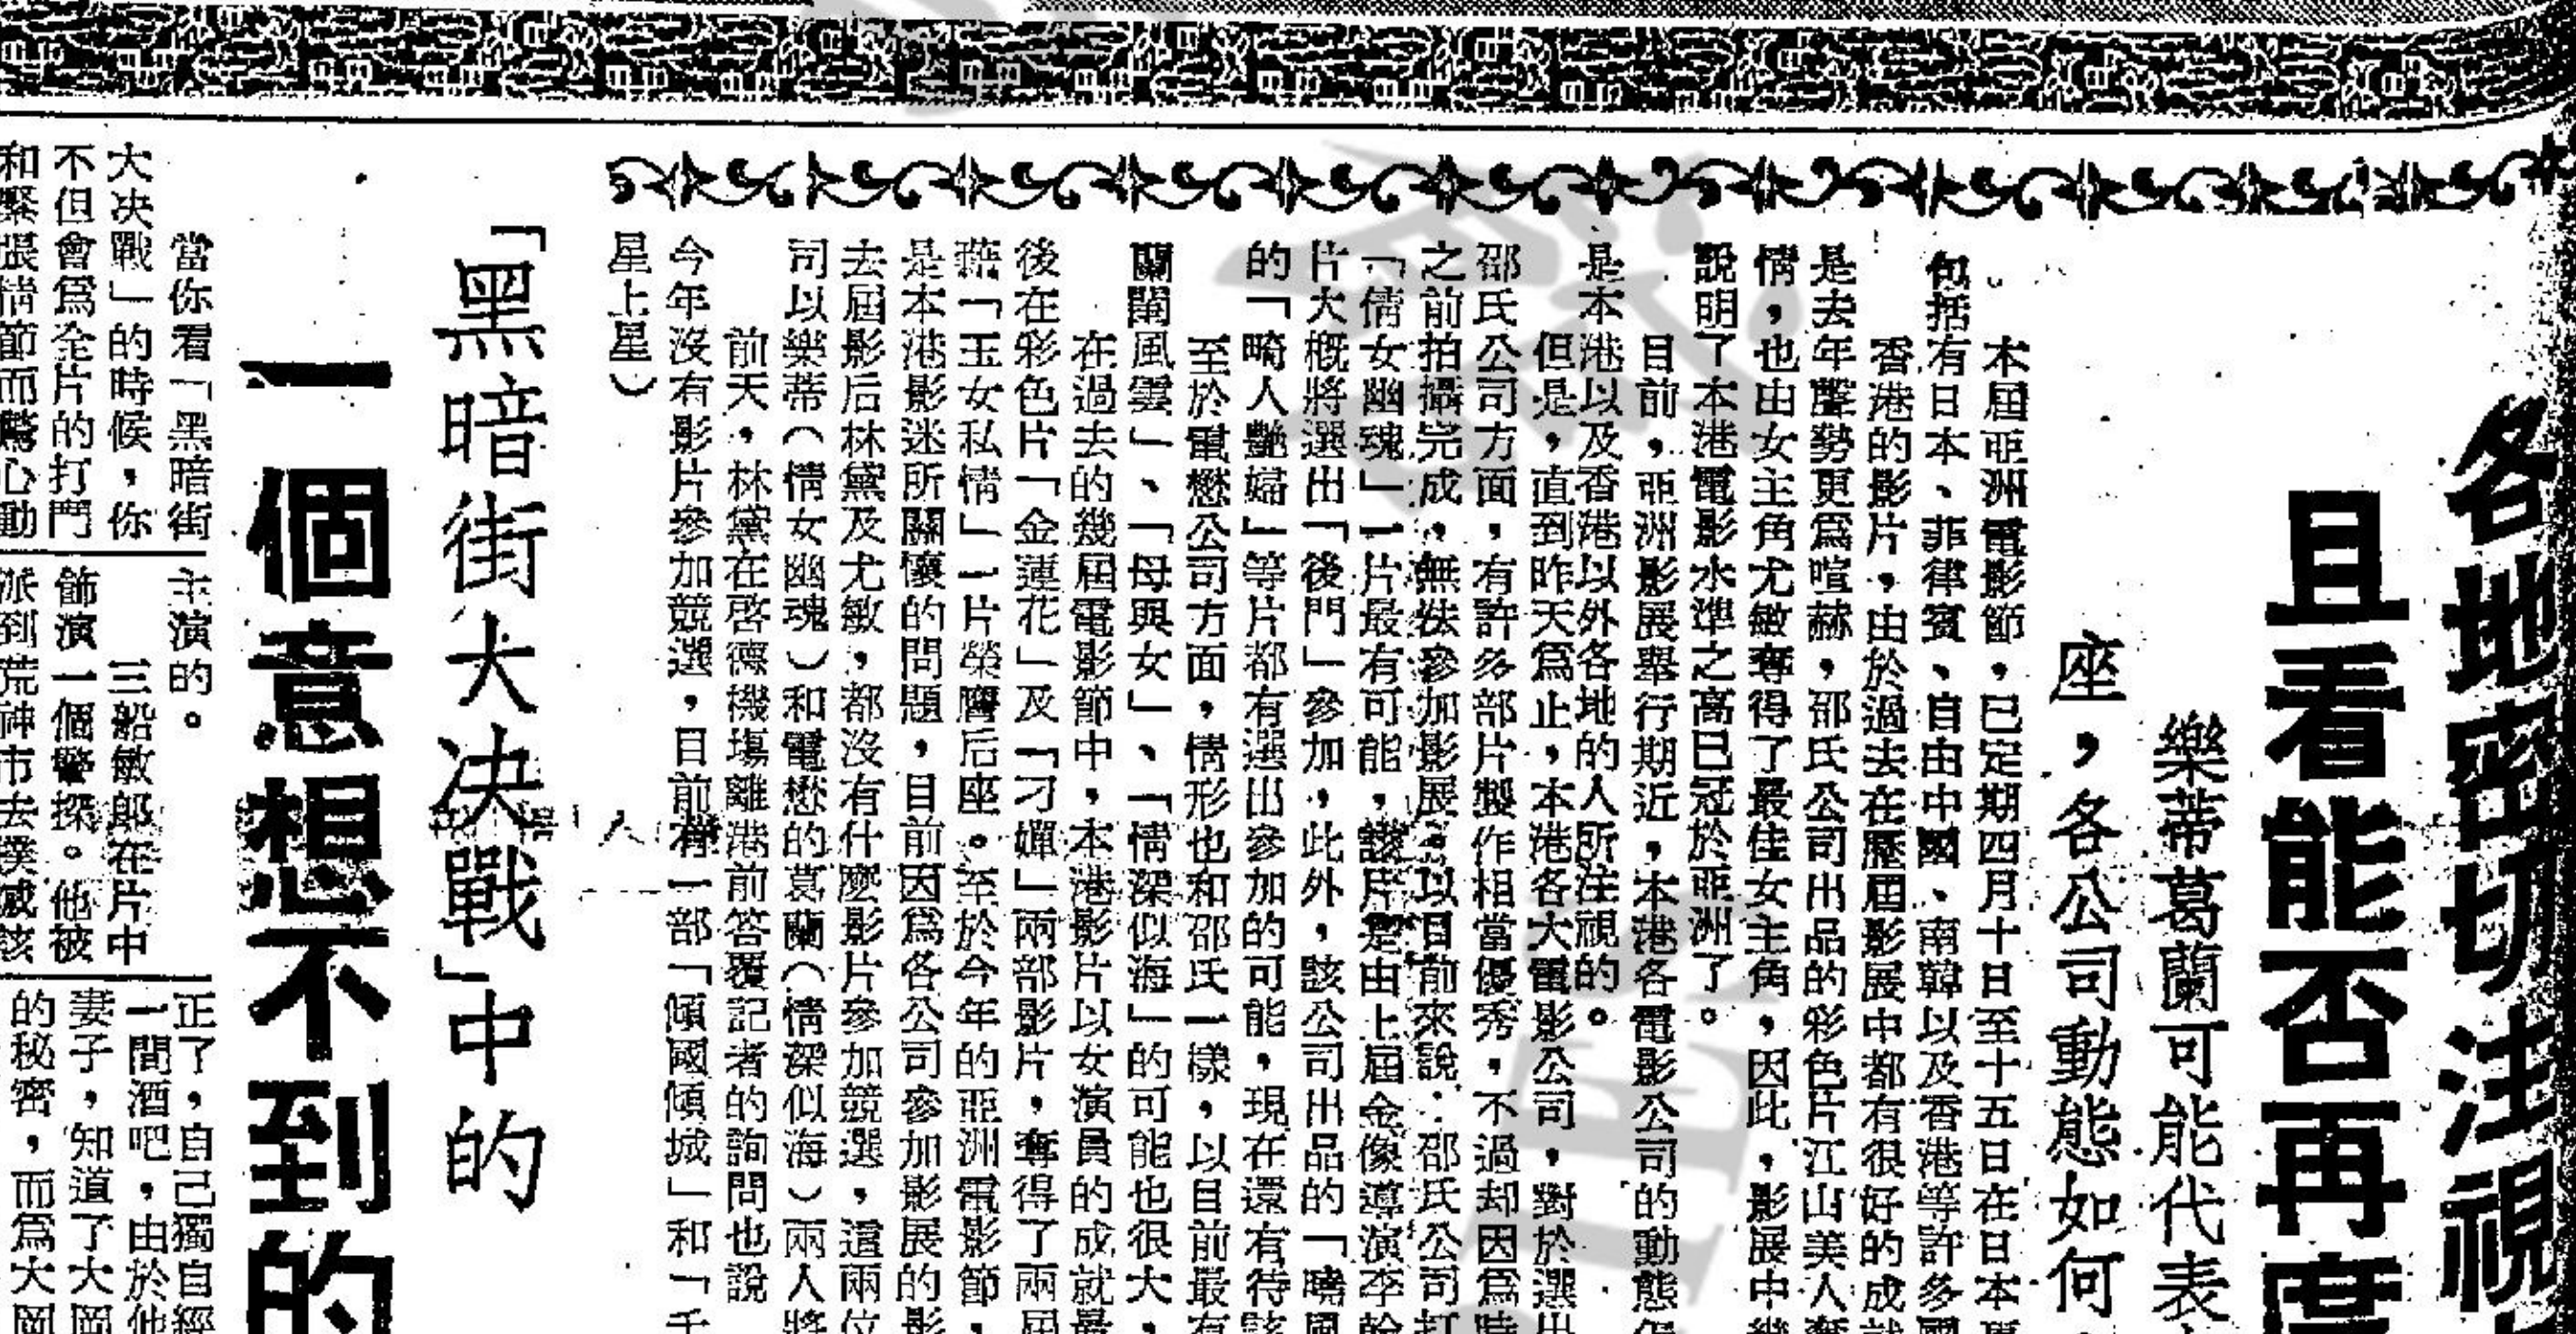 各地密切注視
且看能否再度
樂蒂葛蘭可能代表
座，各公司動態如何
本屆亞洲電影節，已定期四月十日至十五日在日本東
包括有日本、菲律賓、自由中國、南韓以及香港等許多國
。
香港的影片，由於過去在歷屆影展中都有很好的成就
是去年聲勢更爲喧赫，邵氏公司出品的彩色片江山美人奪
情，也由女主角尤敏奪得了最佳女主角，因此，影展中幾
說明了本港電影水準之高已冠於亞洲了。
目前，亞洲影展舉行期近，本港各電影公司的動態
是本港以及香港以外各地的人所注視的。
但是，直到昨天爲止，本港各大電影公司，對於選出
邵氏公司方面，有許多部片製作相當優秀，不過却因爲時
之前拍攝完成，無法參加影展，以目前來說：邵氏公司打
「倩女幽魂」一片最有可能，該片是由上屆金像導演李翰
片大槪將選出「後門」參加，此外，該公司出品的「曉風
的「畸人艶婦」等片都有選出參加的可能，現在還有待該
至於電懋公司方面，情形也和邵氏一樣，以目前最有
闈風雲」、「母與女」、「情深似海」的可能也很大，
在過去的幾屆電影節中，本港影片以女演員的成就最
後在彩色片「金蓮花」及「刁嬋」兩部影片，奪得了兩屆
藉「玉女私情」一片榮膺后座。至於今年的亞洲電影節，
是本港影迷所關懷的問題，目前因爲各公司參加影展的影
去屆影后林黛及尤敏，都沒有什麼影片參加競選，這兩位
司以樂蒂（情女幽魂）和電懋的葛蘭（情深似海）兩人將
前天，林黛在啓德機塲離港前答覆記者的詢問也說
今年沒有影片參加競選，目前有一部「傾國傾城」和「千
星上星）
「黑暗街大决戰」中的
一個意想不到的
當你看「黑暗街
大决戰」的時候，你
不但會爲全片的打鬥
和緊張情節而驚心動
主演的。
三船敏郎在片中
飾演一個警探。他被
派到荒神市去撲滅該
正了，自己獨自經
一間酒吧，由於他
妻子，知道了大岡
的秘密，而爲大岡